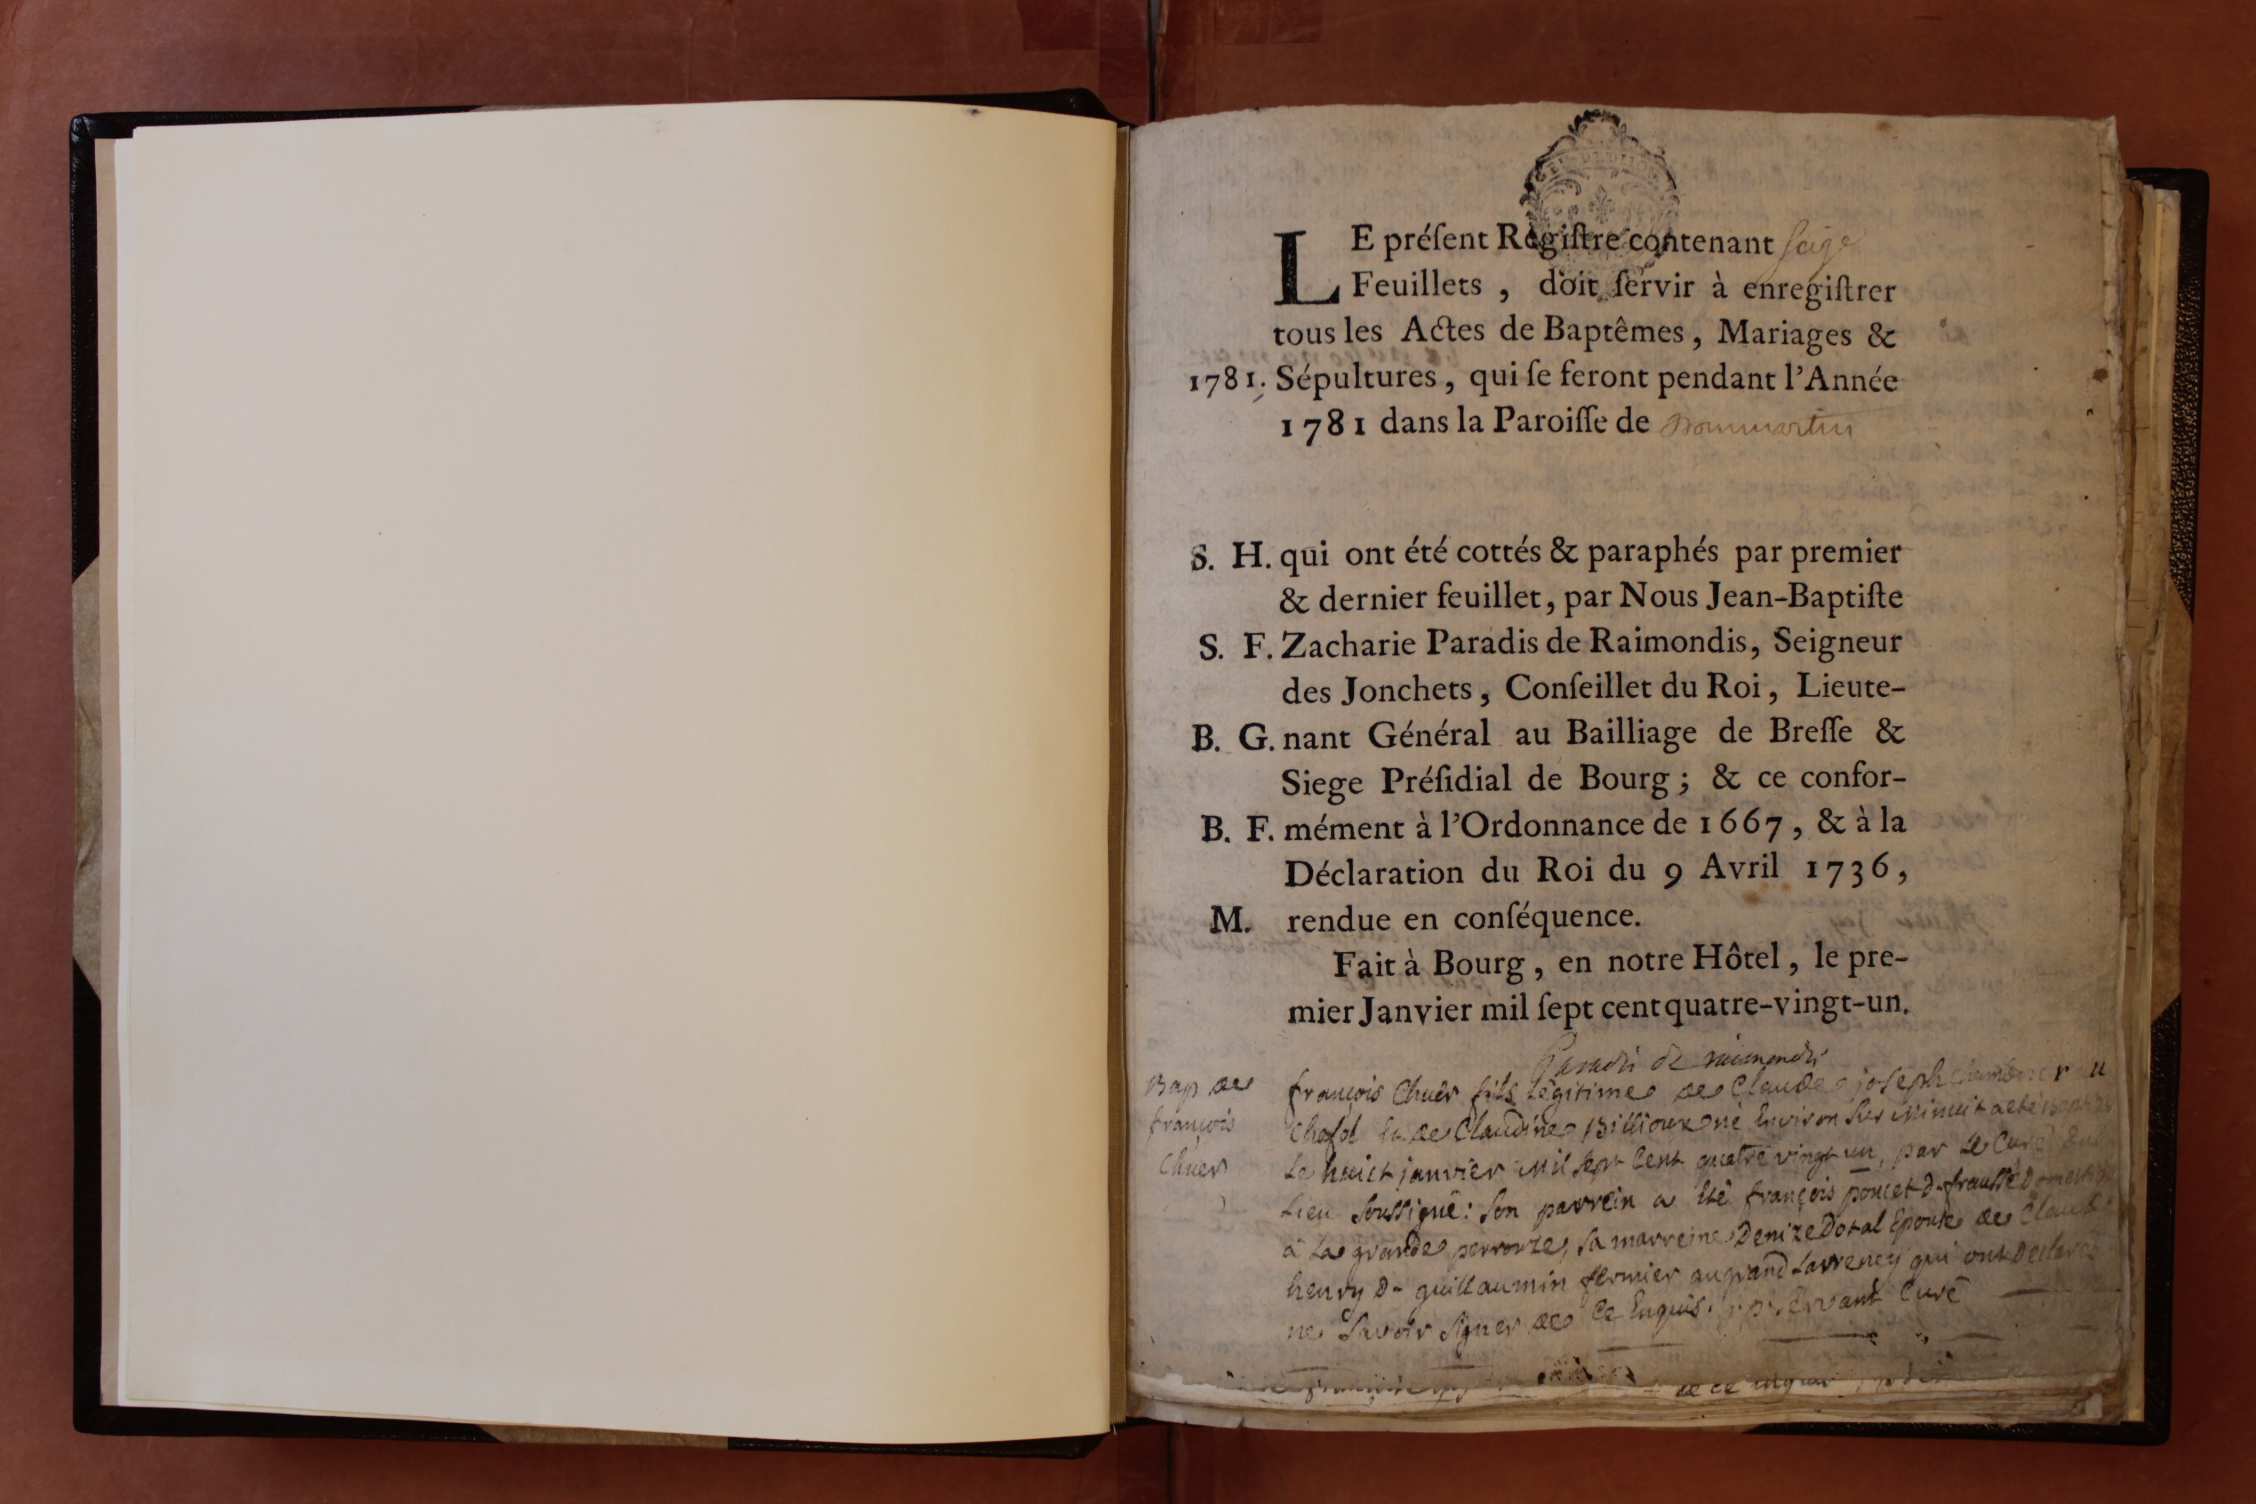 LE préſent Regiſtre contenant seize
Feuillets, doit ſervir à enregiſtrer
tous les Actes de Baptêmes, Mariages &
1781. Sépultures, qui ſe feront pendant l'Année
1781 dans la Paroiſſe de Dommartin
S. H. qui ont été cottés & paraphés par premier
& dernier feuillet, par Nous Jean-Baptiſte
S. F. Zacharie Paradis de Raimondis, Seigneur
des Jonchets, Conſeillet du Roi, Lieute-
B. G. nant Général au Bailliage de Breſſe &
Siege Préſidial de Bourg; & ce confor-
B. F. mément à l'Ordonnance de 1667, & à la
Déclaration du Roi du 9 Avril 1736,
M. rendue en conſéquence.
Fait à Bourg, en notre Hôtel, le pre-
mier Janvier mil ſept cent quatre-vingt-un.
Paradis de raimondis
Bap de
françois
Chuer
françois Chuer fils légitime de Claude joseph
et de Claudine Billioux né environ sur minuit a eté
le huict janvier mil sept cent quatre vingt un, par le Curé du
lieu soussigné: son parrein a eté françois poncet
à la grande perrouze, sa marreine Denize Dotal Epouse de Claude
henry D- guillaumin fermier au grand qui ont declaré
ne savoir signer de ce Enquis. Curé